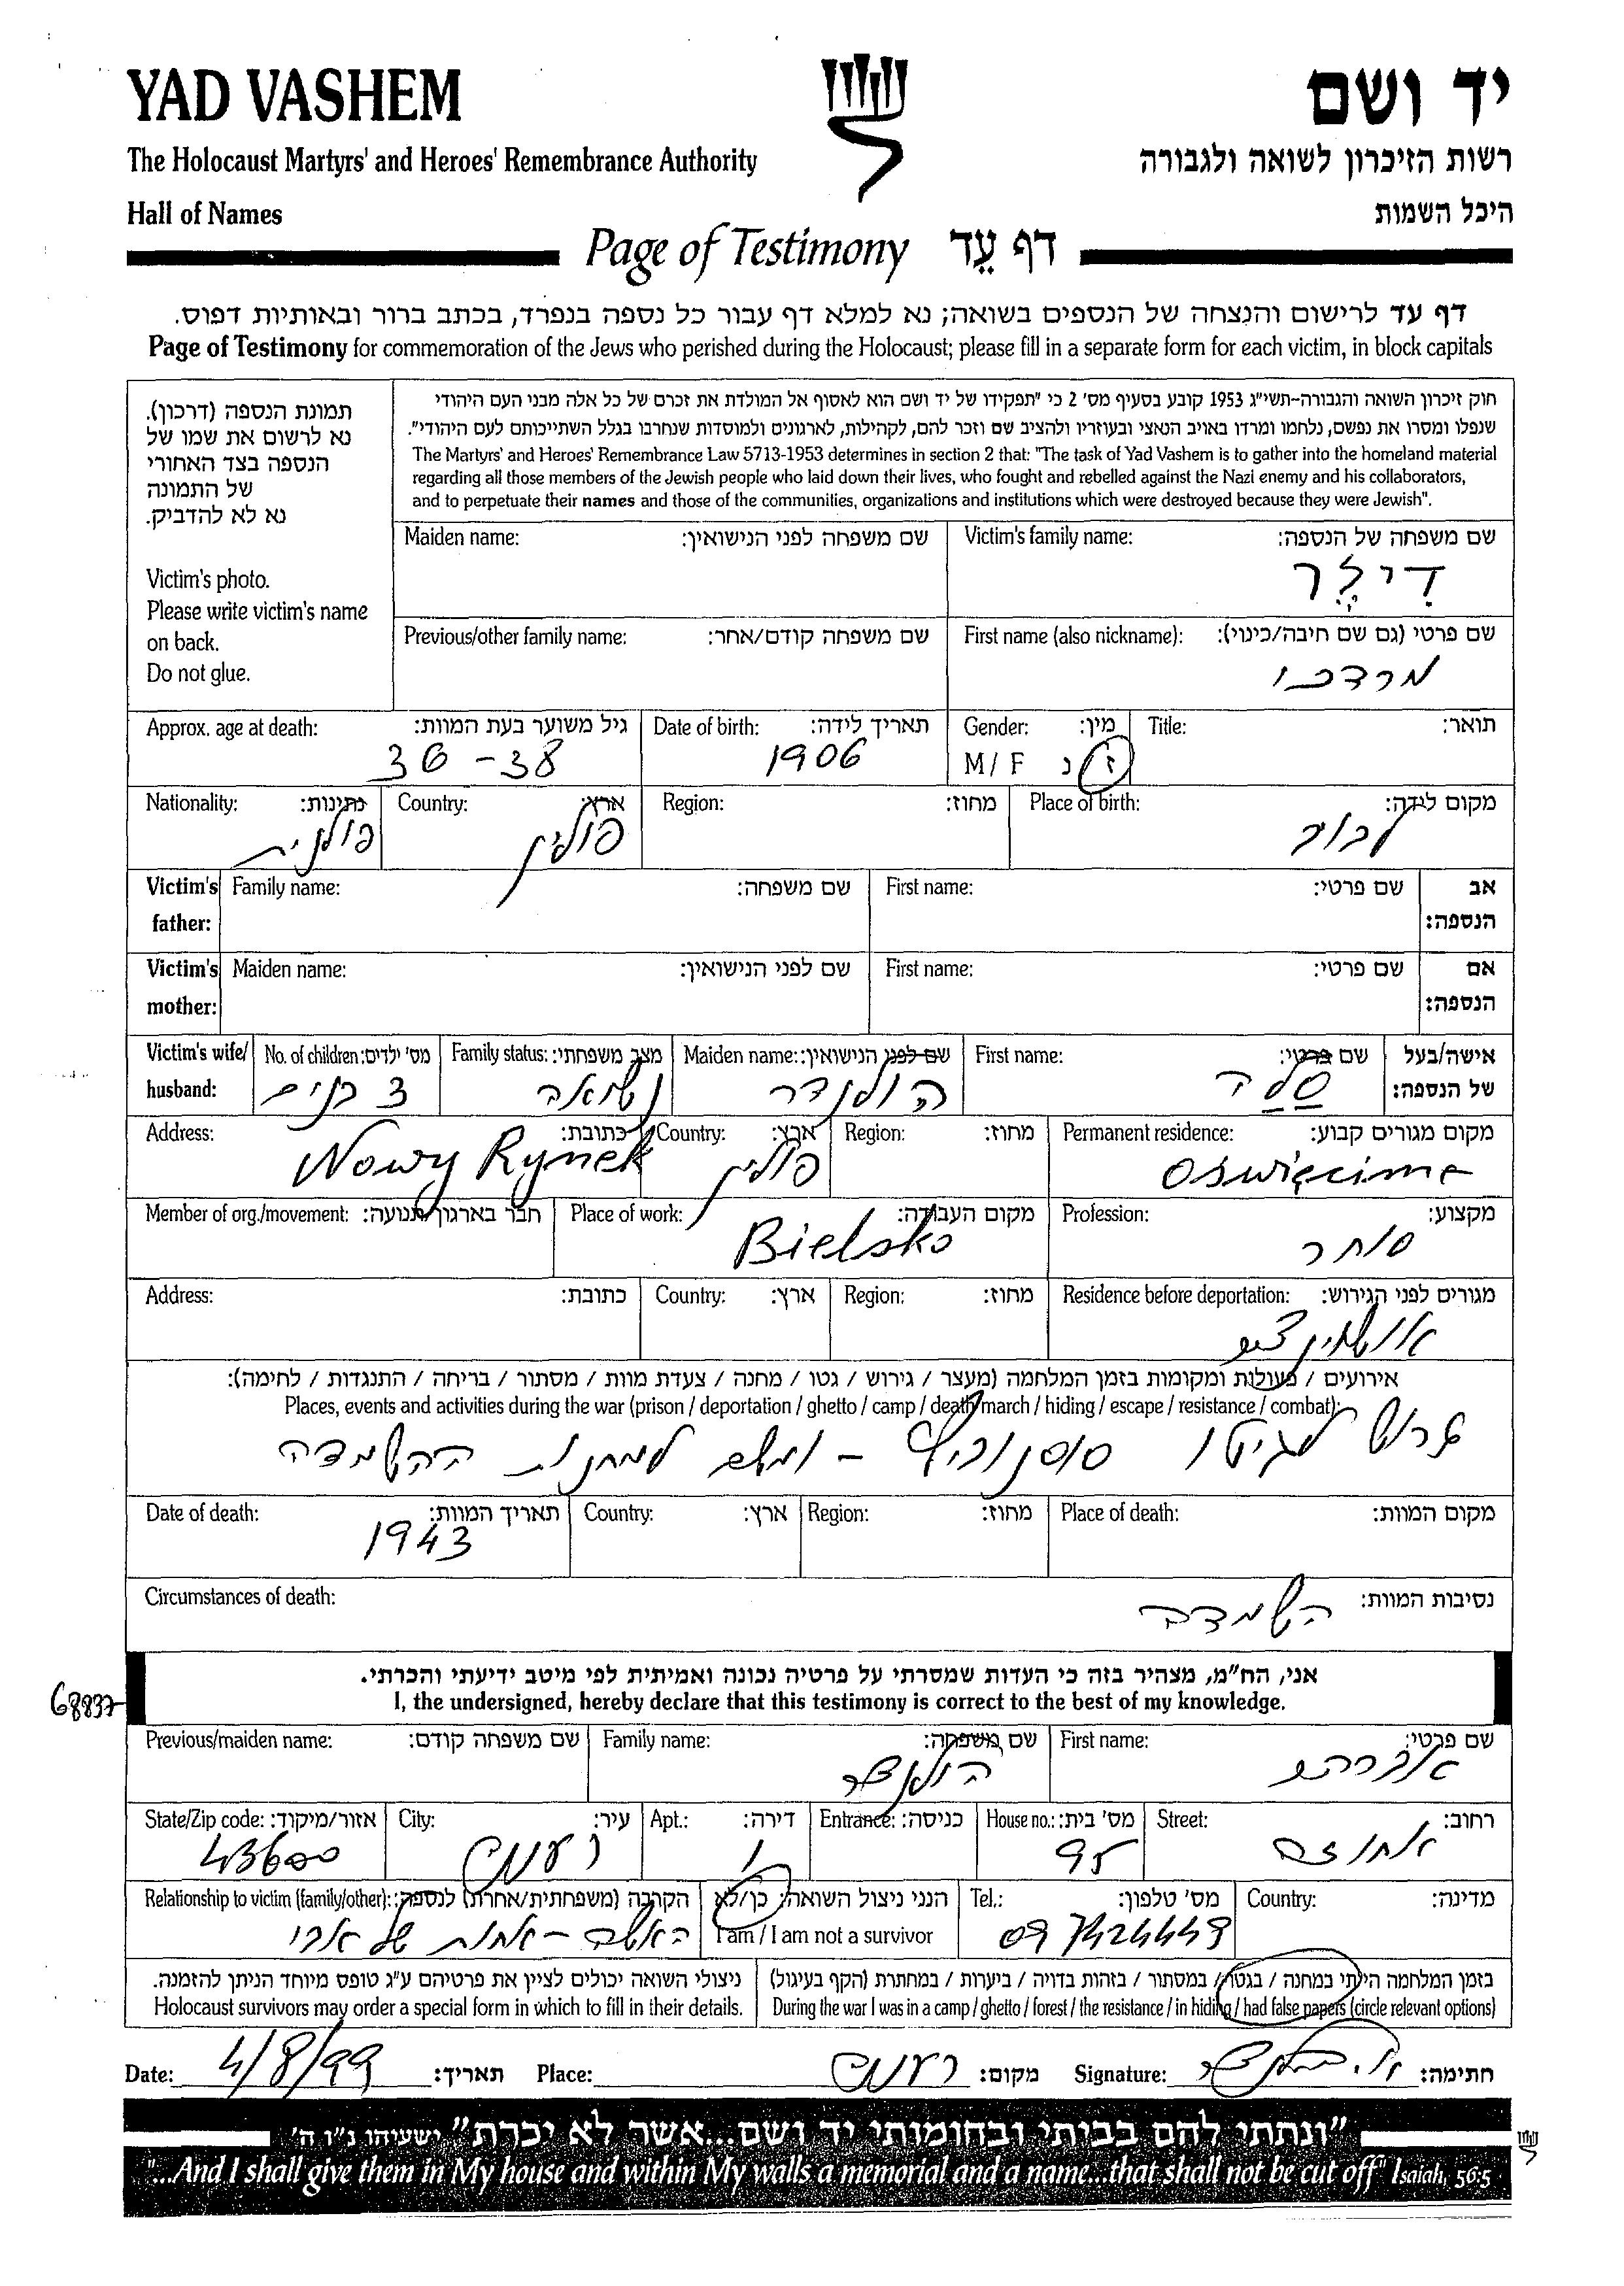 YAD VASHEM
יד ושם
The Holocaust Martyrs' and Heroes' Remembrance Authority
רשות הזיכרון לשואה ולגבורה
Hall of Names
היכל השמות
Page of Testimony דף עֵד
דף עד לרישום והנצחה של הנספים בשואה; נא למלא דף עבור כל נספה בנפרד, בכתב ברור ובאותיות דפוס.
Page of Testimony for commemoration of the Jews who perished during the Holocaust; please fill in a separate form for each victim, in block capitals
תמונת הנספה (דרכון).
נא לרשום את שמו של
הנספה בצד האחורי
של התמונה
נא לא להדביק.
Victim's photo.
Please write victim's name
on back.
Do not glue.
חוק זיכרון השואה והגבורה-תשי"ג 1953 קובע בסעיף מס' 2 כי "תפקידו של יד ושם הוא לאסוף אל המולדת את זכרם של כל אלה מבני העם היהודי
שנפלו ומסרו את נפשם, נלחמו ומרדו באויב הנאצי ובעוזריו ולהציב שם וזכר להם, לקהילות, לארגונים ולמוסדות שנחרבו בגלל השתייכותם לעם היהודי".
The Martyrs' and Heroes' Remembrance Law 5713-1953 determines in section 2 that: "The task of Yad Vashem is to gather into the homeland material
regarding all those members of the Jewish people who laid down their lives, who fought and rebelled against the Nazi enemy and his collaborators,
and to perpetuate their names and those of the communities, organizations and institutions which were destroyed because they were Jewish".
Maiden name: שם משפחה לפני הנישואין:
Victim's family name: שם משפחה של הנספה:
דילר
Previous/other family name: שם משפחה קודם/אחר:
First name (also nickname): שם פרטי (גם שם חיבה/כינוי):
מרדכי
Approx. age at death: גיל משוער בעת המוות:
36-38
Date of birth: תאריך לידה:
1906
Gender: מין:
M / F ז / נ
Title: תואר:
Nationality: נתינות:
פולנית
Country: ארץ:
פולין
Region: מחוז:
Place of birth: מקום לידה:
Victim's father: Family name: שם משפחה:
First name: שם פרטי:
אב הנספה:
Victim's mother: Maiden name: שם לפני הנישואין:
First name: שם פרטי:
אם הנספה:
Victim's wife/ husband:
No. of children: מס' ילדים:
3 בנים
Family status: מצב משפחתי:
נשואה
Maiden name: שם לפני הנישואין:
הולנדר
First name: שם פרטי:
סלה
אישה/בעל של הנספה:
Address: כתובת:
Nowy Rynek
Country: ארץ:
פולין
Region: מחוז:
Permanent residence: מקום מגורים קבוע:
Oświęcima
Member of org./movement: חבר בארגון/תנועה:
Place of work: מקום העבודה:
Bielsko
Profession: מקצוע:
סוחר
Address: כתובת:
Country: ארץ:
Region: מחוז:
Residence before deportation: מגורים לפני הגירוש:
אירועים / פעולות ומקומות בזמן המלחמה (מעצר / גירוש / גטו / מחנה / צעדת מוות / מסתור / בריחה / התנגדות / לחימה):
Places, events and activities during the war (prison / deportation / ghetto / camp / death march / hiding / escape / resistance / combat):
גרוש לגיטו סוסנוביץ - ומשם למחנות ההשמדה
Date of death: תאריך המוות:
1943
Country: ארץ:
Region: מחוז:
Place of death: מקום המוות:
Circumstances of death: נסיבות המוות:
השמדה
68837
אני, הח"מ, מצהיר בזה כי העדות שמסרתי על פרטיה נכונה ואמיתית לפי מיטב ידיעתי והכרתי.
I, the undersigned, hereby declare that this testimony is correct to the best of my knowledge.
Previous/maiden name: שם משפחה קודם:
Family name: שם משפחה:
הולנדר
First name: שם פרטי:
אברהם
State/Zip code: אזור/מיקוד:
43600
City: עיר:
רעננה
Apt.: דירה:
1
Entrance: כניסה:
House no.: מס' בית:
95
Street: רחוב:
אחוזה
Relationship to victim (family/other): הקרבה (משפחתית/אחרת) לנספה:
האשה - אחות של אבי
הנני ניצול השואה: כן/לא
I am / I am not a survivor
Tel.: מס' טלפון:
09 7424449
Country: מדינה:
ניצולי השואה יכולים לציין את פרטיהם ע"ג טופס מיוחד הניתן להזמנה.
Holocaust survivors may order a special form in which to fill in their details.
בזמן המלחמה הייתי במחנה / בגטו / במסתור / בזהות בדויה / ביערות / במחתרת (הקף בעיגול)
During the war I was in a camp / ghetto / forest / the resistance / in hiding / had false papers (circle relevant options)
Date: 4/8/99 תאריך:
Place: רעננה מקום:
Signature: חתימה:
"ונתתי להם בביתי ובחומותי יד ושם...אשר לא יכרת" ישעיהו נ"ו ה'
"...And I shall give them in My house and within My walls a memorial and a name...that shall not be cut off" Isaiah, 56:5